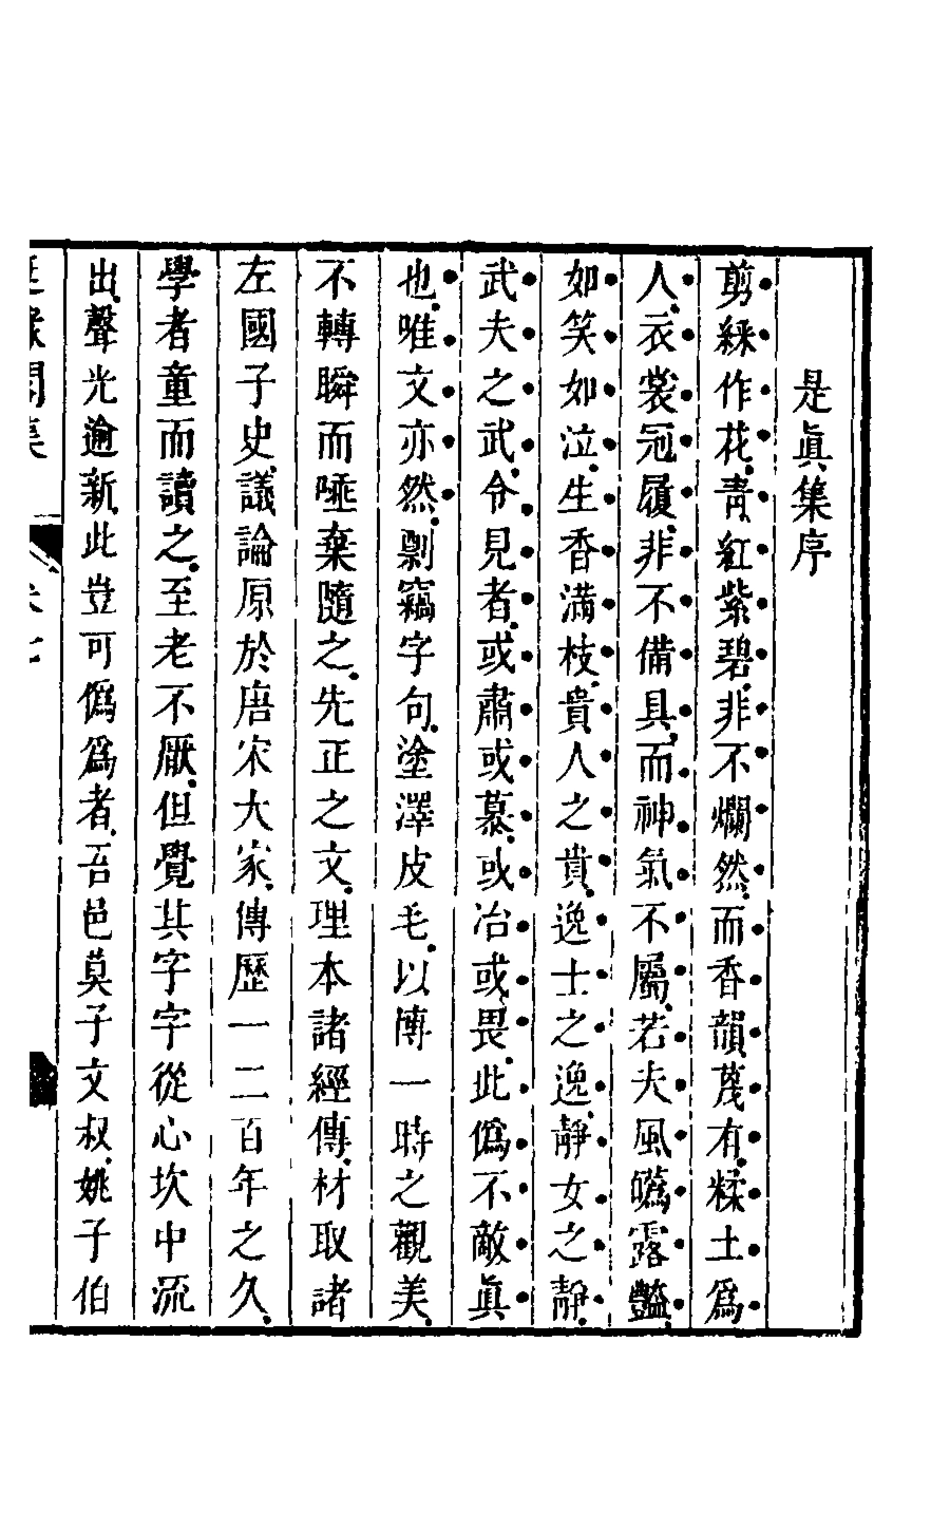 是眞集序
剪綵作花青紅紫碧非不爛然而香韻茂有糅土爲
人衣裳冠履非不備具而神氣不屬若夫風嬌露豔
如笑如泣生香滿枝貴人之貴逸士之逸靜女之靜
武夫之武令見者或肅或慕或冶或畏此僞不敵眞
也唯文亦然剽竊字句塗澤皮毛以博一時之觀美
不轉瞬而唾棄隨之先正之文理本諸經傳材取諸
左國子史議論原於唐宋大家傳歷一二百年之久
學者童而讀之至老不厭但覺其字字從心坎中流
出聲光逾新此豈可僞爲者吾邑莫子文叔姚子伯